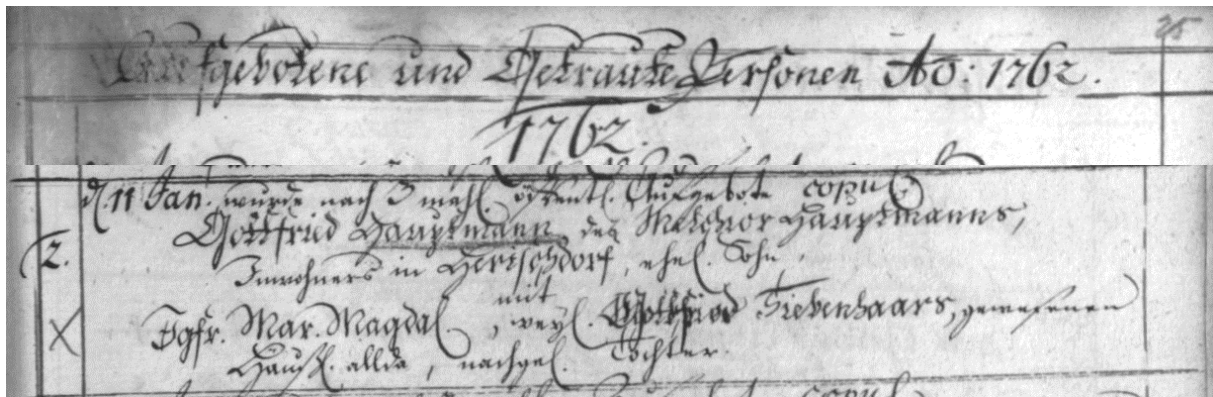 25
Aufgebotene und Getraute Personen Ao: 1762.
1762.
d. 11 Jan. wurde nach 3 mahl. öffentl. Aufgebote copul.
2. Gottfried Hauptmann, des Melchior Hauptmanns,
Inwohners in Herischdorf, ehel. Sohn.
mit
X Jgfr. Mar. Magdal., weyl. Gottfried Siebenhaars, gewesenen
Häußl. allda, nachgel. Tochter.